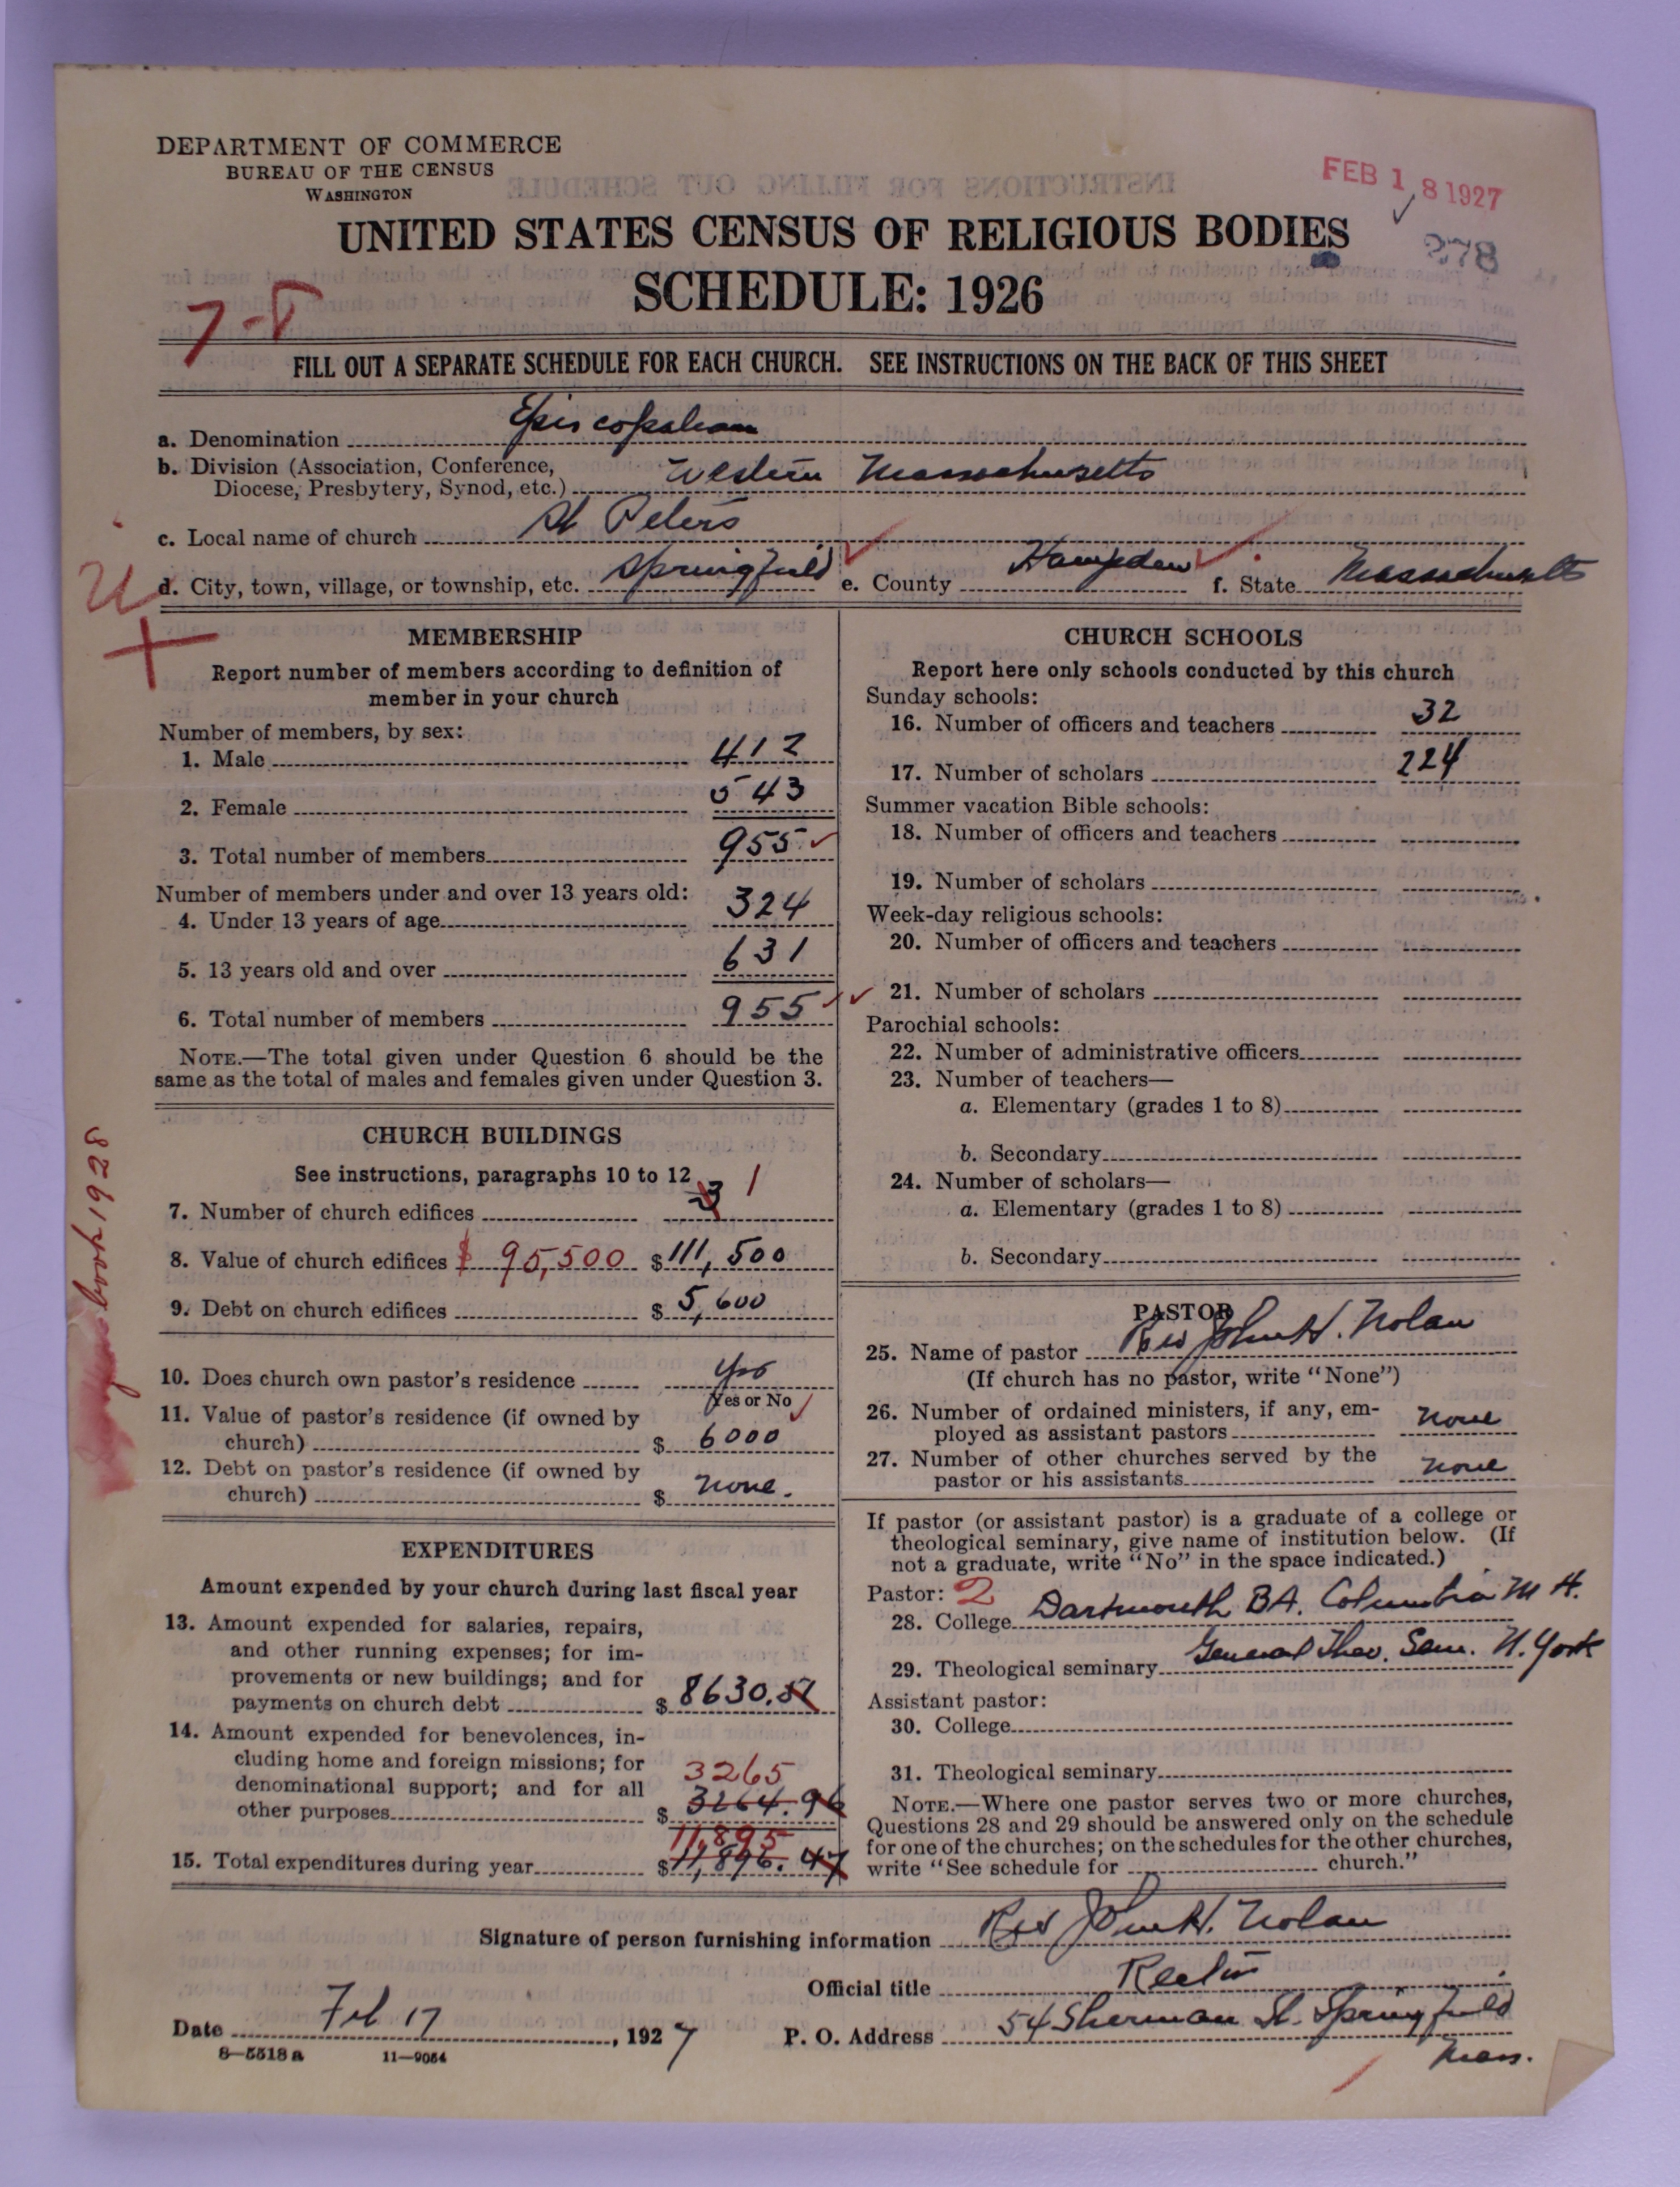 DEPARTMENT OF COMMERCE
BUREAU OF THE CENSUS
WASHINGTON
FEB 18 1927
378
UNITED STATES CENSUS OF RELIGIOUS BODIES
SCHEDULE: 1926
FILL OUT A SEPARATE SCHEDULE FOR EACH CHURCH. SEE INSTRUCTIONS ON THE BACK OF THIS SHEET
a. Denomination Episcopalian
b. Division (Association, Conference,
Diocese, Presbytery, Synod, etc.) Western Massachusetts
c. Local name of church St Peters
d. City, town, village, or township, etc. Springfield e. County Hampden f. State Massachusetts
MEMBERSHIP
Report number of members according to definition of
member in your church
Number of members, by sex:
1. Male 412
2. Female 543
3. Total number of members 955
Number of members under and over 13 years old:
4. Under 13 years of age 324
5. 13 years old and over 631
6. Total number of members 955
NOTE.—The total given under Question 6 should be the
same as the total of males and females given under Question 3.
CHURCH BUILDINGS
See instructions, paragraphs 10 to 12
7. Number of church edifices 3 1
8. Value of church edifices $ 95,500 $ 111,500
9. Debt on church edifices $ 5,600
10. Does church own pastor's residence Yes
Yes or No
11. Value of pastor's residence (if owned by
church) $ 6000
12. Debt on pastor's residence (if owned by
church) $ none.
book 1928
EXPENDITURES
Amount expended by your church during last fiscal year
13. Amount expended for salaries, repairs,
and other running expenses; for im-
provements or new buildings; and for
payments on church debt $ 8630.51
14. Amount expended for benevolences, in-
cluding home and foreign missions; for
denominational support; and for all 3265
other purposes $ 3264.96
11,895
15. Total expenditures during year $ 11,896.47
CHURCH SCHOOLS
Report here only schools conducted by this church
Sunday schools:
16. Number of officers and teachers 32
17. Number of scholars 224
Summer vacation Bible schools:
18. Number of officers and teachers
19. Number of scholars
Week-day religious schools:
20. Number of officers and teachers
21. Number of scholars
Parochial schools:
22. Number of administrative officers
23. Number of teachers—
a. Elementary (grades 1 to 8)
b. Secondary
24. Number of scholars—
a. Elementary (grades 1 to 8)
b. Secondary
PASTOR
25. Name of pastor Rev John H. Nolan
(If church has no pastor, write "None")
26. Number of ordained ministers, if any, em-
ployed as assistant pastors none
27. Number of other churches served by the
pastor or his assistants none
If pastor (or assistant pastor) is a graduate of a college or
theological seminary, give name of institution below. (If
not a graduate, write "No" in the space indicated.)
Pastor: 2
28. College Dartmouth BA. Columbia M A.
29. Theological seminary General Theo. Sem. N. York
Assistant pastor:
30. College
31. Theological seminary
NOTE.—Where one pastor serves two or more churches,
Questions 28 and 29 should be answered only on the schedule
for one of the churches; on the schedules for the other churches,
write "See schedule for church."
Signature of person furnishing information Rev John H. Nolan
Official title Rector
Date Feb 17, 1927 P. O. Address 54 Sherman St. Springfield
Mass.
8—5518a 11—9054